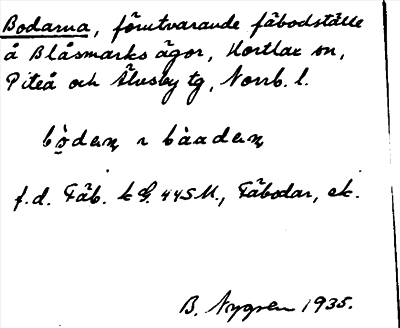 Bodarna, förutvarande fäbodställe
å Blåsmarks ägor, Hortlax sn,
Piteå och Älvsby tg, Norrb. l.
bȯ̠daṇ ~ bàadaṇ
f.d. Fäb. k G. 445 M., Fäbodar, ek.
B. Nygren 1935.